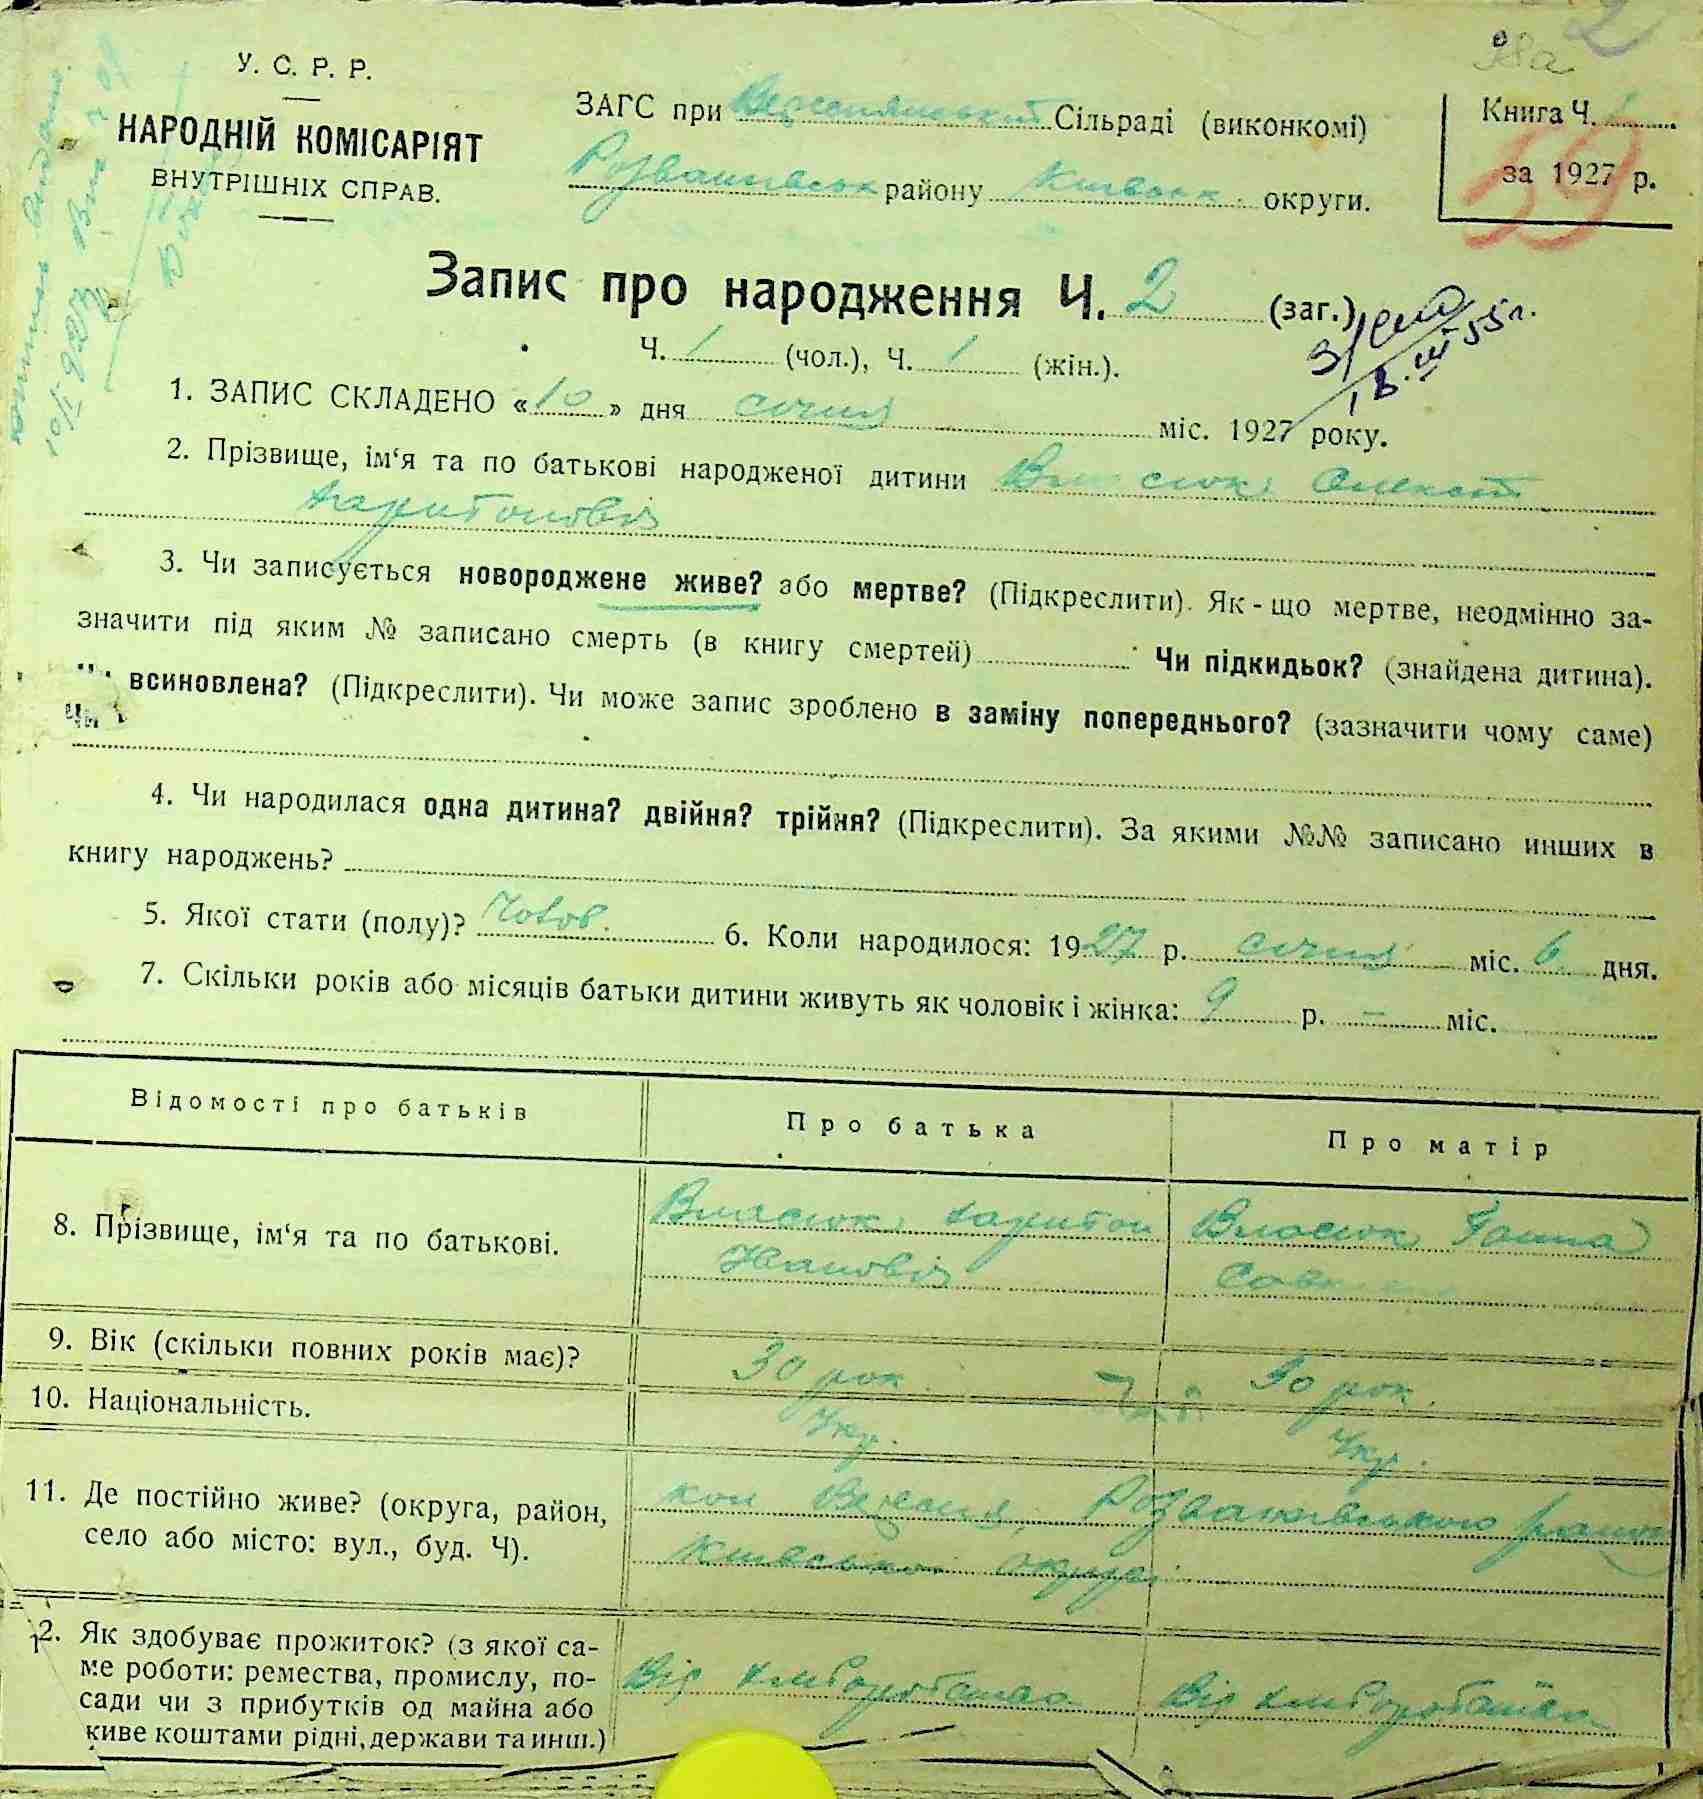 2
У. С. Р. Р.
НАРОДНІЙ КОМІСАРІЯТ
ВНУТРІШНІХ СПРАВ.
ЗАГС при Сільраді (виконкомі)
району округи.
Книга Ч. 1
за 1927 р.
39
Запис про народження Ч. 2 (заг.)
Ч. 1 (чол.), Ч. 1 (жін.).
1. ЗАПИС СКЛАДЕНО «10» дня січня міс. 1927 року.
2. Прізвище, ім‘я та по батькові народженої дитини Власюк Олексій
Харитонович
3. Чи записується новороджене живе? або мертве? (Підкреслити). Як-що мертве, неодмінно за-
значити під яким № записано смерть (в книгу смертей) Чи підкидьок? (знайдена дитина).
Чи всиновлена? (Підкреслити). Чи може запис зроблено в заміну попереднього? (зазначити чому саме)
4. Чи народилася одна дитина? двійня? трійня? (Підкреслити). За якими №№ записано инших в
книгу народжень?
5. Якої стати (полу)? Чолов. 6. Коли народилося: 1927 р. січня міс. 6 дня.
7. Скільки років або місяців батьки дитини живуть як чоловік і жінка: 9 р. — міс.
Відомості про батьків Про батька Про матір
8. Прізвище, ім‘я та по батькові. Власюк Харитон Власюк Ганна
Іванович
9. Вік (скільки повних років має)? 30 рок. 30 рок.
10. Національність. Укр. Укр.
11. Де постійно живе? (округа, район,
село або місто: вул., буд. Ч).
Київської округи
12. Як здобуває прожиток? (з якої са-
ме роботи: ремества, промислу, по-
сади чи з прибутків од майна або
живе коштами рідні, держави та инш.)
Від хліборобства Від хліборобства